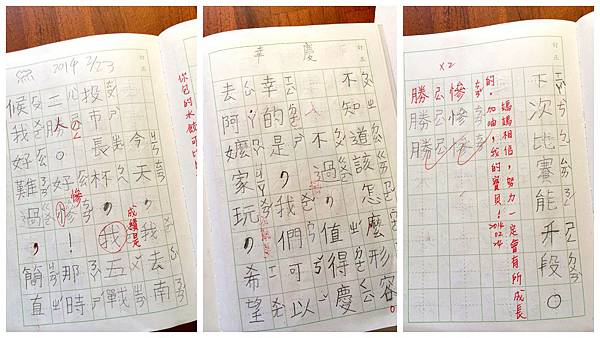 2014 2/23
你包的水餃可以
今天我去南
投市長杯，我五戰
成績是
二勝。好慘！那時
慘
候我好難過，簡直
幸慶
訂正
不知道該怎麼形容
不過，值得慶
幸的是，我們可以
去阿嬤家玩，希望
訂正
下次比賽能升段。
媽媽相信，努力一定會有所成長
的。加油，我的寶貝！2014 02 24
x2
慘慘慘
勝勝勝